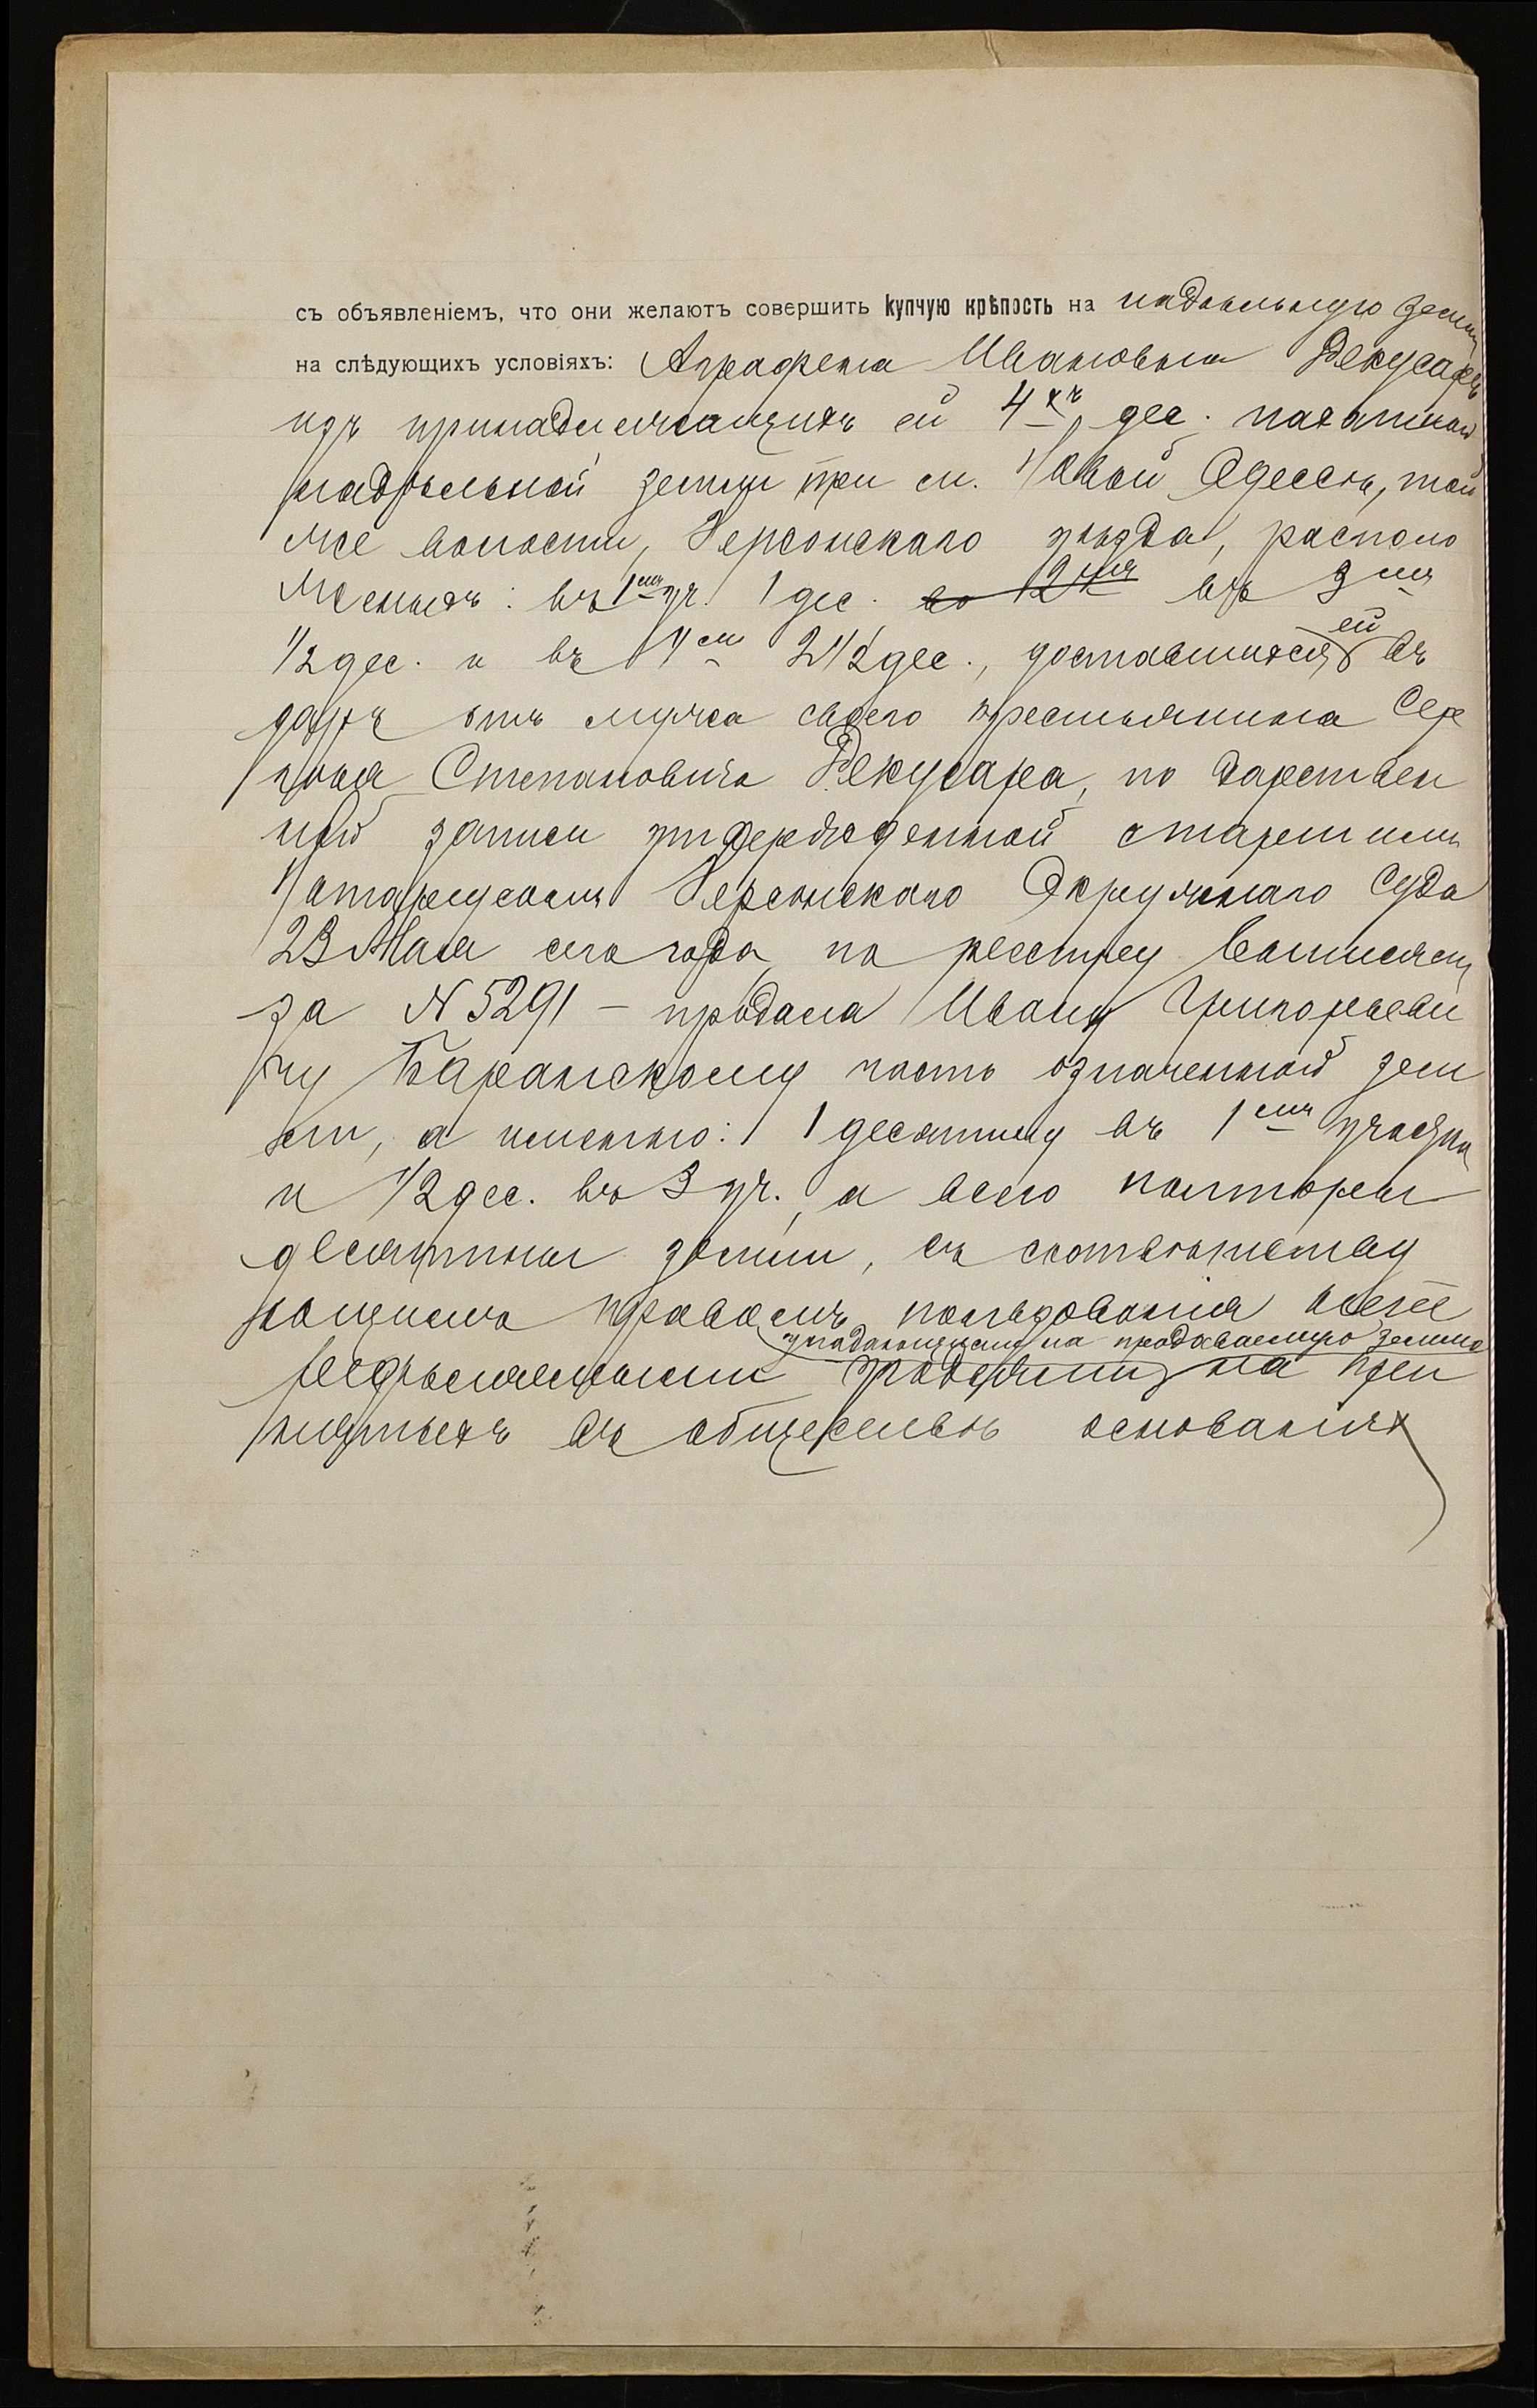 съ объявленіемъ, что они желаютъ совершить купчую крѣпость на надѣльную землю
на слѣдующихъ условіяхъ: Аграфена Ивановна Рекусаръ
изъ принадлежащихъ ей 4хъ дес. пахатной
надѣльной земли при м. Новой Одессѣ, той
же волости, Херсонскаго уѣзда, располо
женныхъ: въ 1мъ уч. 1 дес. во 2мъ въ 3мъ
1/2 дес. и въ 4мъ 2 1/2 дес., доставшихся ей въ
даръ отъ мужа своего крестьянина
Степановича Рекусара, по дарствен
ной записи утвержденной старшимъ
Нотаріусомъ Херсонскаго Окружнаго Суда
23 Мая сего года по реестру
за N 5291 – продала Ивану Григорьеви
чу Баранскому часть означенной зем
ли, а именно: 1 десятину въ 1мъ участкѣ
и 1/2 дес. въ 3 уч., а всего полторы
десятины земли, съ соотвѣтству
ющимъ правомъ пользованія
упадающими на продаваемую землю
угодьями на при
нятыхъ въ обществѣ основаніяхъ